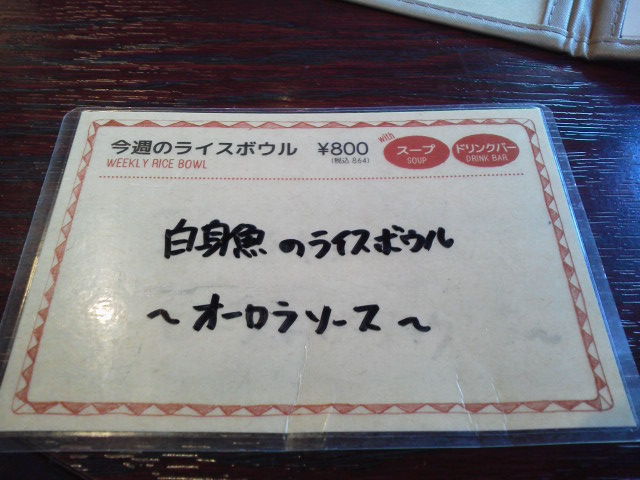 今週のライスボウル ¥800 with スープ ドリンクバー
WEEKLY RICE BOWL (税込 864) SOUP DRINK BAR
白身魚のライスボウル
〜オーロラソース〜